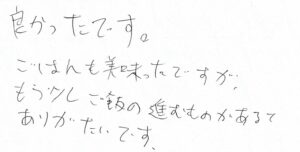 良かったです。
ごはんも美味ったですが、
もう少しご飯の進むものがあるて
ありがたいです。